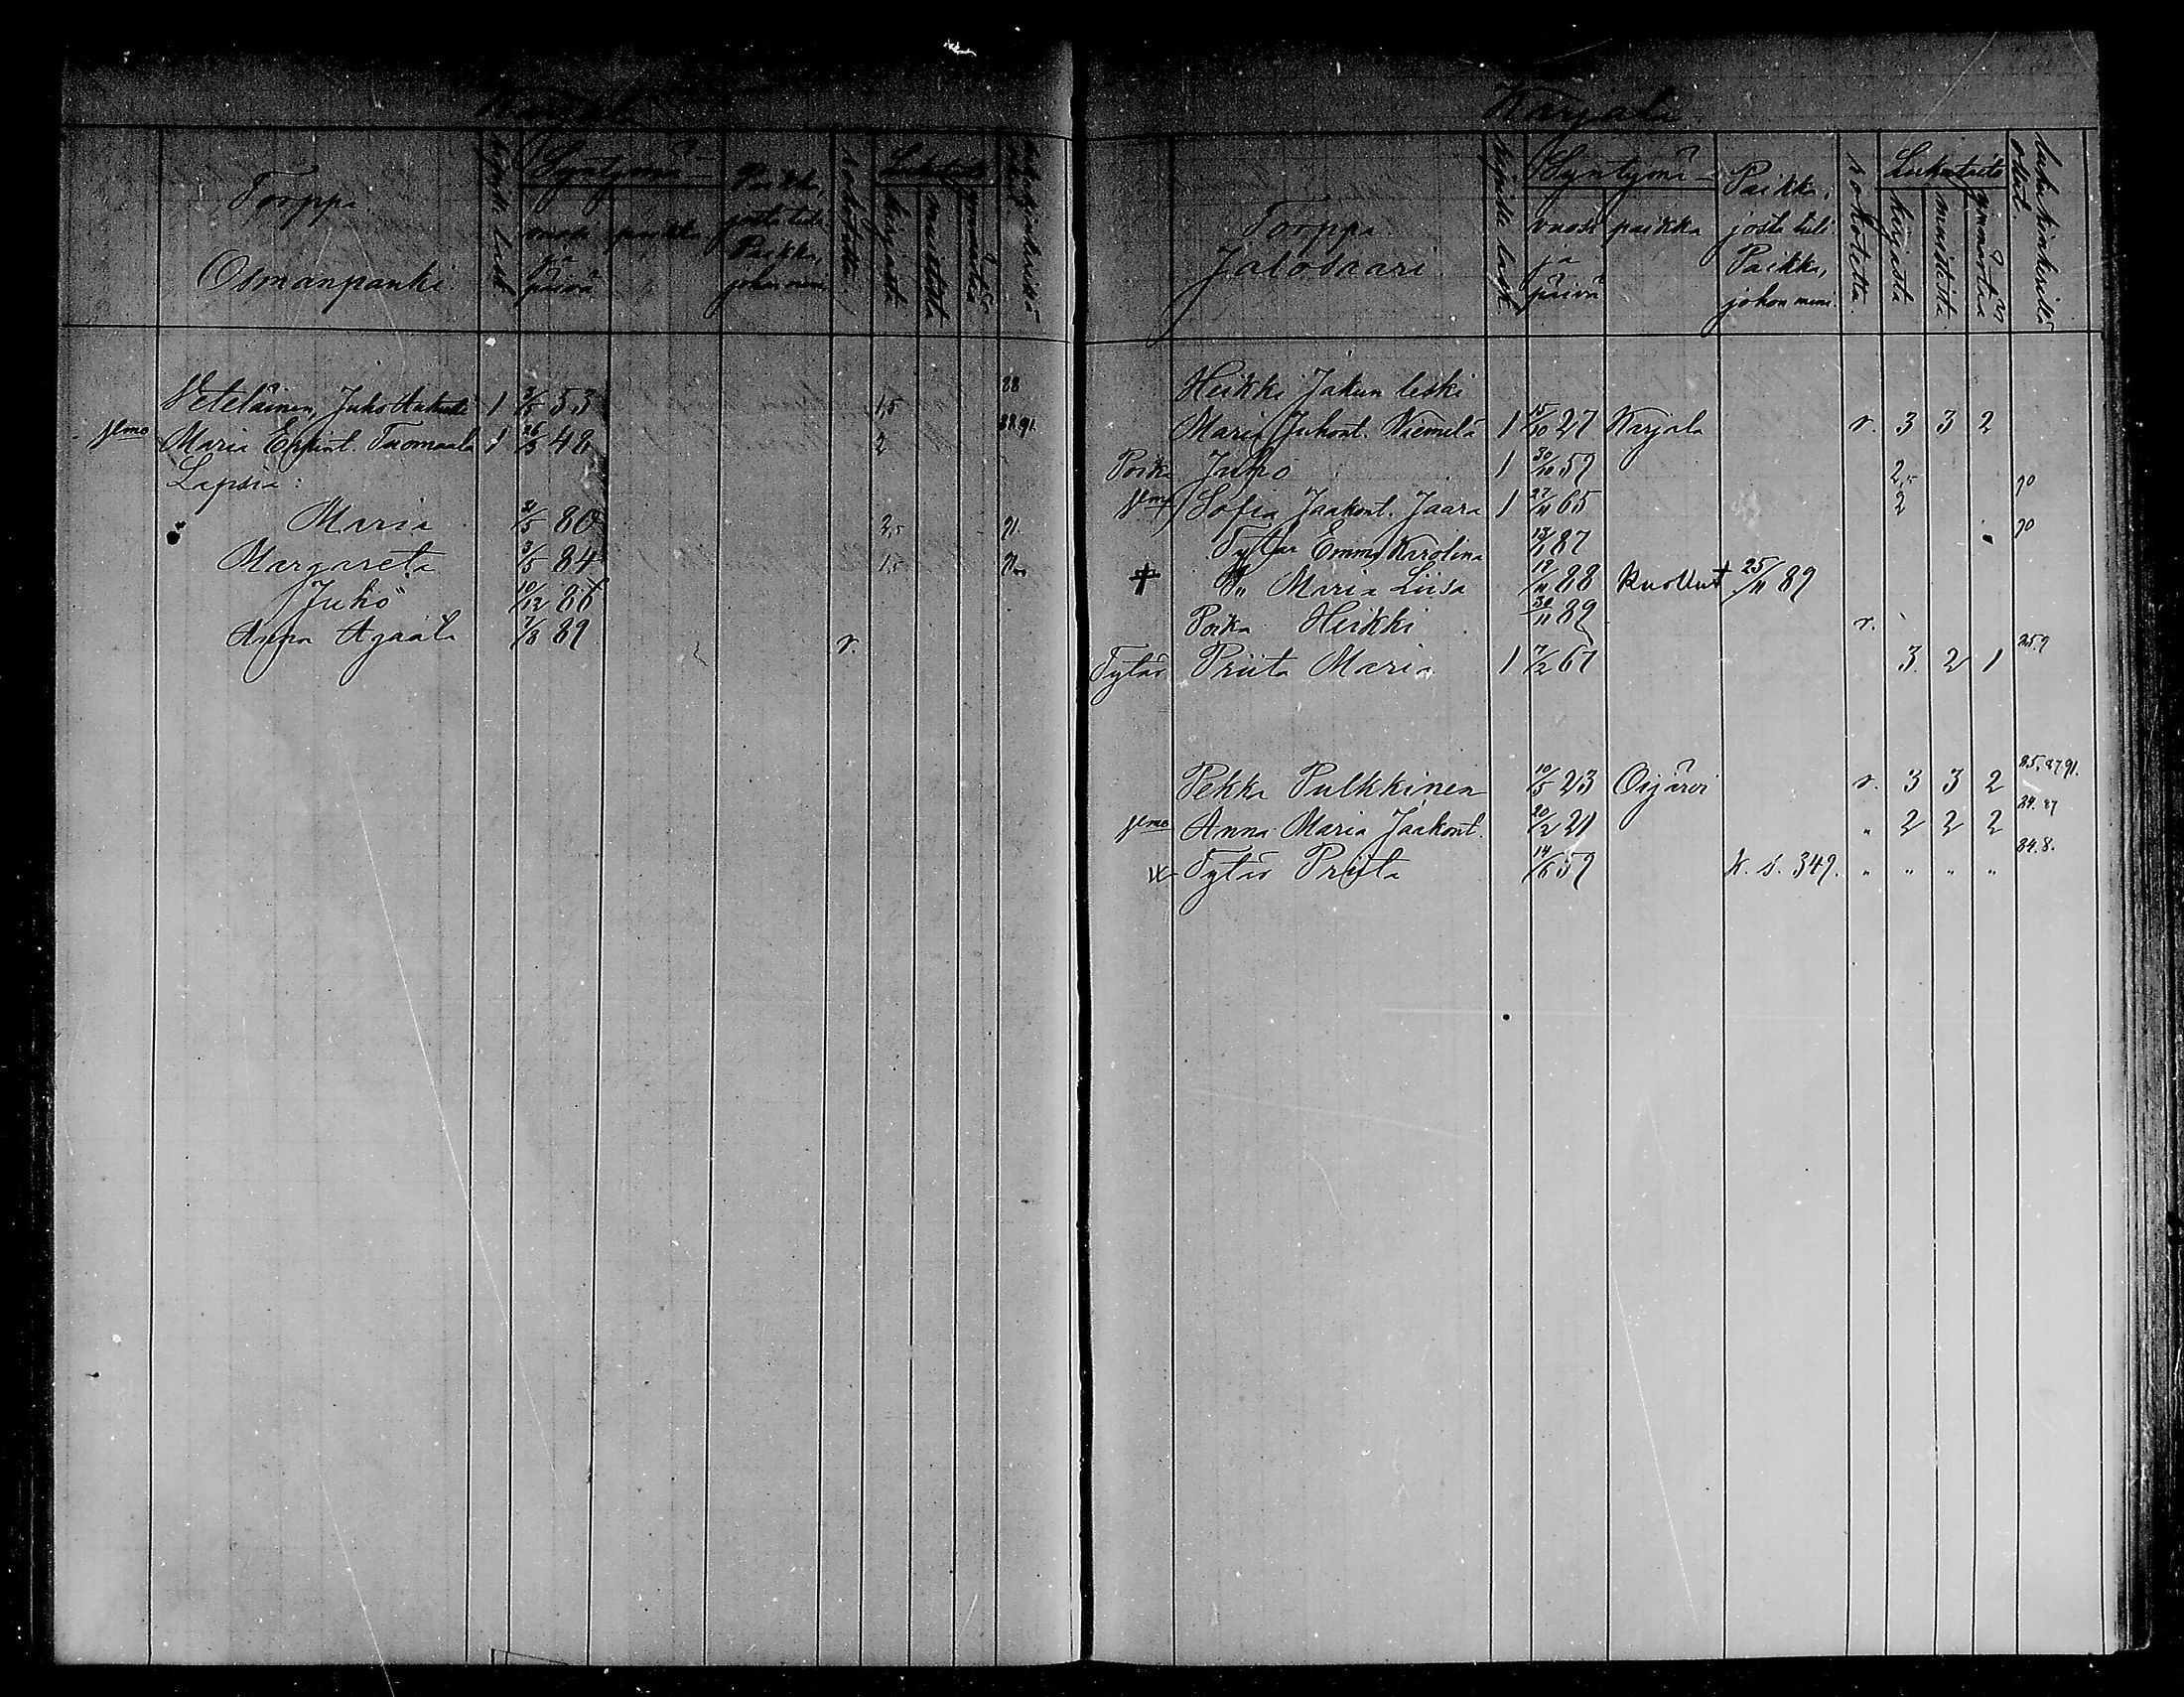 Torppa
Osmanpanki.
Syntymä-
Paikka, josta tuli.
Paikka, johon meni
vuosi ja päivä
paikka
rokotettu
Lukutaito
kirjasta
muistista
ymmärtää
Veteläinen, Juho 1 3/5 53 1,5 88
Vmo Maria Tuomaala 1 26/5 48 2 88.91.
Lapsia:
Maria 21/5 80 2,5 91.
Margareta 3/5 84 1,5
Juho 10/12 86
Anna Agaata 7/8 89 r.
Karjala
Torppa
Jalosaari.
Syntymä-
vuosi ja päivä
paikka
Paikka, josta tuli
Paikka, johon meni.
rokotettu
Lukutaito
kirjasta
muistista
ymmärtää
lukukinkerillä ollut.
Heikki Jakun leski
Maria Juhont. Niemelä 1 15/10 27 Karjala r. 3 3 2
Poika Juho 1 30/10 59 2,5
Vmo Sofia Jaakont. Jaara 1 27/11 65 2 90
Tytär Emma Karolina 13/1 87 90
† " Maria Liisa 19/11 88 Kuollut 25/11 89
Poika Heikki 30/11 89 r.
Tytär Priita Maria 1 7/2 67 3 2 1
Pekka Pulkkinen 10/5 23 Oijärvi r. 3 3 2 85.87.91.
Vmo Anna Maria Jaakont. 20/2 21 " 2 2 2 84.87
Tytär Priita 14/6 59 K. s. 349. " " " " 84.8.